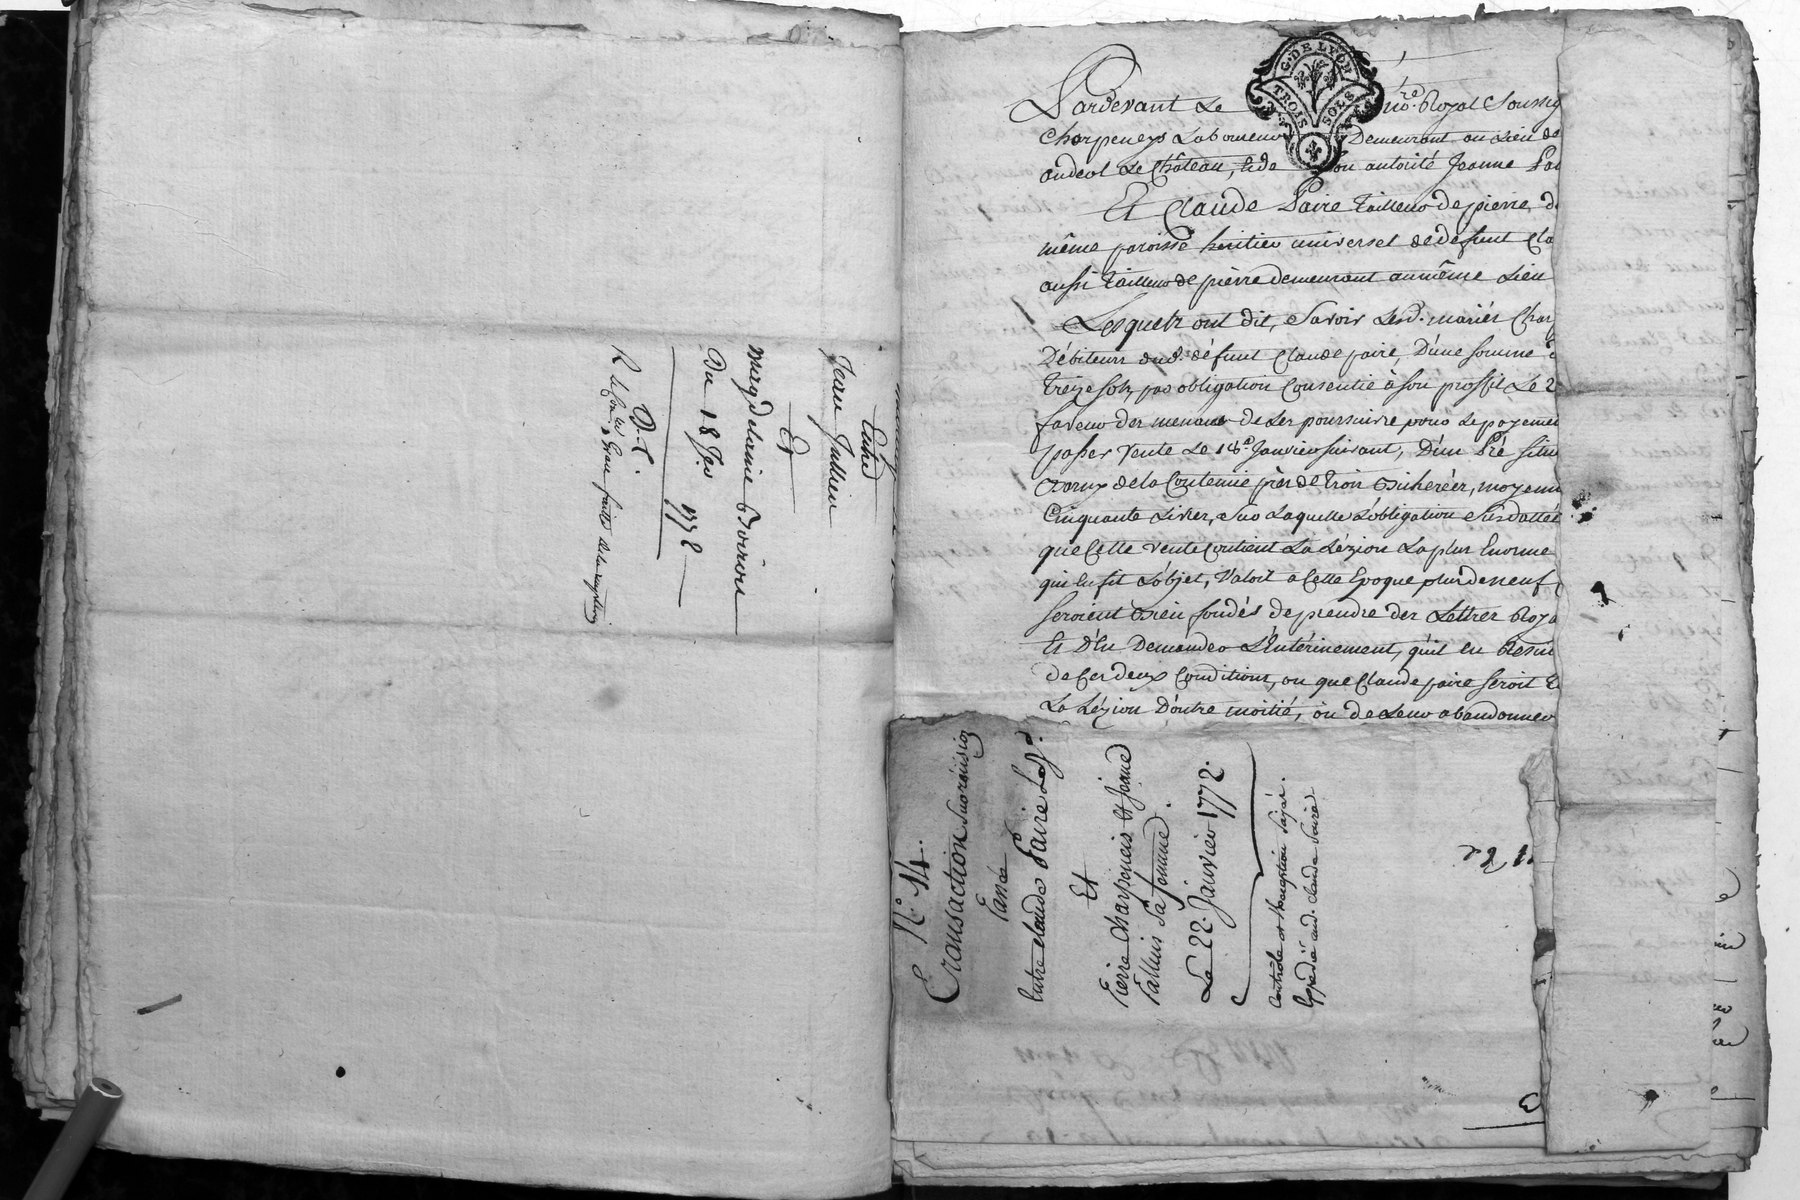 Entre
Jean Jullien
Et
Magdelaine
Du 18 Jer 1772
D. C.
G. DE LYON
TROIS SOLS
Pardevant Le no.re Royal Soussig
Charpeneys Laboureur Demeurant au Lieu de
andeol Le Château, & de son autorité Jeanne
Et Claude Paire tailleur de pierre, d
même paroisse héritier universel de défunt Cla
aussi tailleur de pierre demeurant au même Lieu
Lesquels ont dit, Savoir Lesd. mariés Char
Débiteurs aud. défunt Claude paire, D'une Somme
treize sols, par obligation Consentie à son proffit Le 2
faveur des menaces de Les poursuivre pour Le payemen
passer vente Le 18.e Janvier suivant, D'un Pré situé
de la Contenue près de trois Bicherées, moyenn
Cinquante Livres, Sur Laquelle L'obligation Susdattée
que Cette vente Contient La Lézion La plus Enorme
qui En fit L'objet, Valoit a Cette Epoque plus de neuf
seroient Bien fondés de prendre des Lettres Roya
Et D'En Demander L'Entérinement, qu'il En
de Ces deux Conditions, ou que Claude paire seroit
La Lézion D'outre moitié, ou de Leur abandonner
N.o 14.
Transaction Sur
Passée
Entre Claude Paire
Et
Pierre Charpeneis Et Jeanne
Sa femme.
Le 22. Janvier 1772.
Controlle et
Expédié aud. Claude Paire